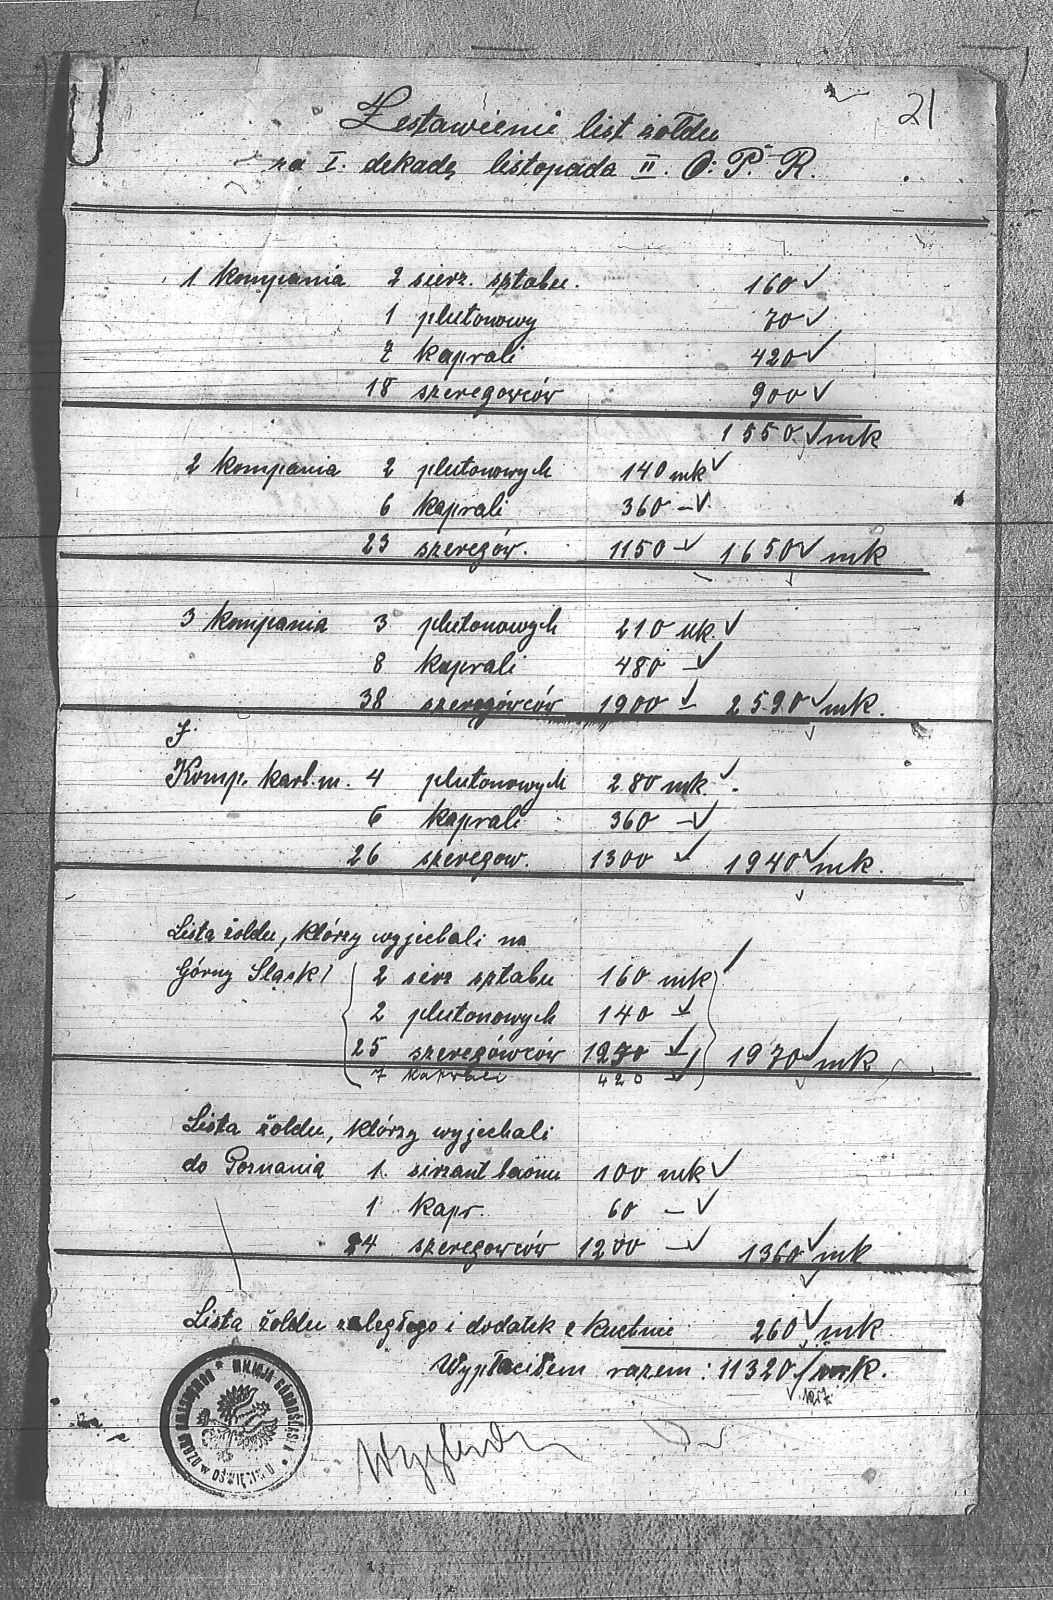 21
Zestawienie list żołdu
za I. dekadę listopada II. O. P. R.
1 kompania 2 sierz. sztabu. 160
1 plutonowy 70
7 kaprali 420
18 szeregowców 900
1550 mk
2 kompania 2 plutonowych 140 mk
6 kaprali 360 –
23 szeregów. 1150 – 1650 mk
3 kompania 3 plutonowych 210 mk.
8 kaprali 480 –
38 szeregówców 1900 – 2590 mk.
I.
Komp. karb. m. 4 plutonowych 280 mk.
6 kaprali 360 –
26 szeregow. 1300 – 1940 mk.
Lista żołdu, którzy wyjechali na
Górny Śląsk 2 sierz sztabu 160 mk
2 plutonowych 140 –
25 szeregówców 1250 – 1970 mk
7 kaprali 420 –
Lista żołdu, którzy wyjechali
do Poznania 1 sierżant baonu 100 mk
1 kapr. 60 –
24 szeregowców 1200 – 1360 mk
Lista żołdu zaległego i dodatek z kuchnie 260 mk
Wypłaciłem razem: 11320 mk.
w OŚWIĘCIMIU